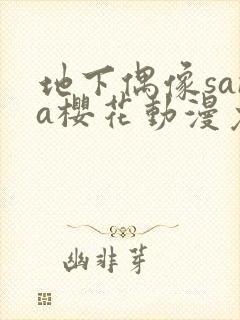 地下偶像sa
a櫻花動漫
幽非芽